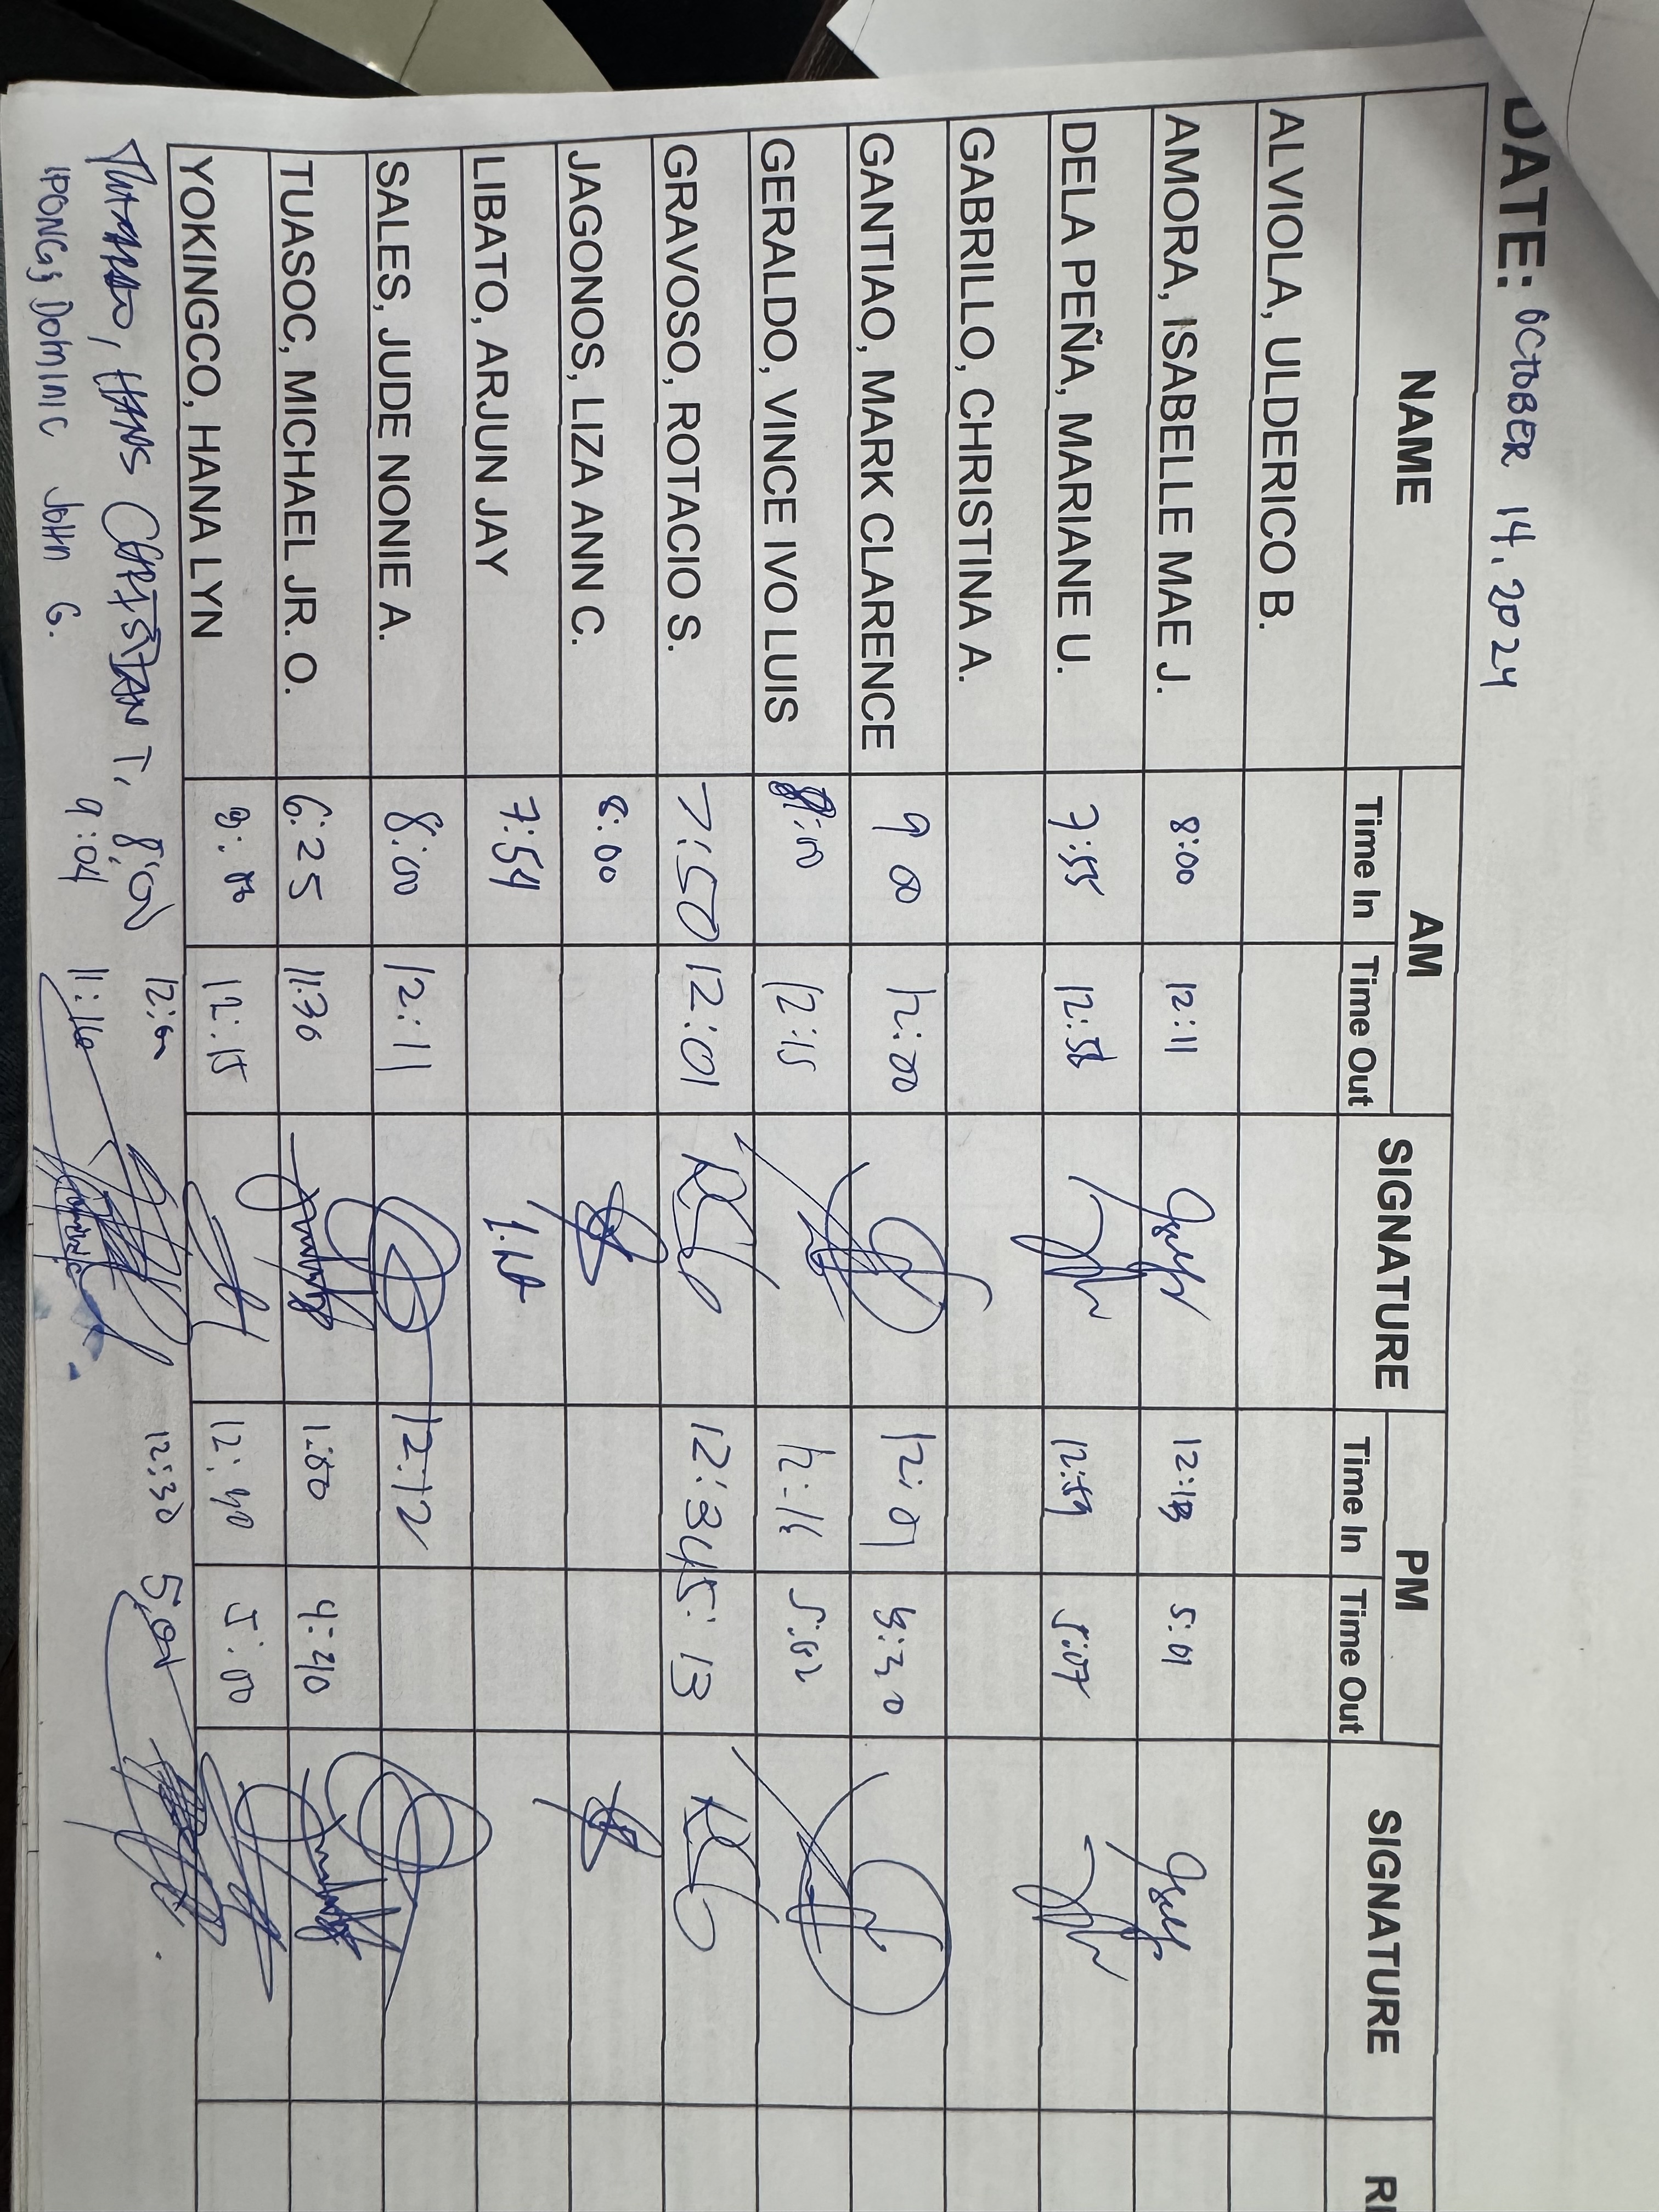 DATE: OCTOBER 14, 2024
NAME AM SIGNATURE PM SIGNATURE
Time In Time Out Time In Time Out
ALVIOLA, ULDERICO B.
AMORA, ISABELLE MAE J. 8:00 12:11 12:13 5:01
DELA PEÑA, MARIANE U. 7:55 12:58 12:59 5:07
GABRILLO, CHRISTINA A.
GANTIAO, MARK CLARENCE 9 00 12:00 12:01
GERALDO, VINCE IVO LUIS 12:15 12:16 5:02
GRAVOSO, ROTACIO S. 7:50 12:01 5:13
JAGONOS, LIZA ANN C. 8:00
LIBATO, ARJUN JAY 7:54
SALES, JUDE NONIE A. 8:00 12:11 12:12
TUASOC, MICHAEL JR. O. 6:25 11:30 1:00
YOKINGCO, HANA LYN 12:15 5:00
HANS CHRISTIAN T. 8:00 12:30
IPONG, DOMINIC JOHN G. 9:04 11:16